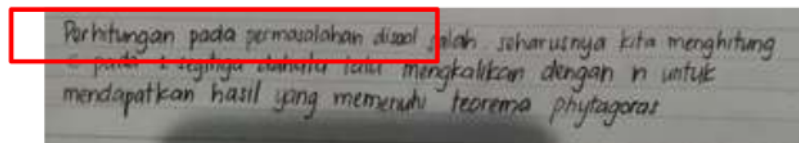 Perhitungan pada permasalahan disoal salah seharusnya kita menghitung
c pada 1 segitiga dahulu lalu mengkalikan dengan n untuk
mendapatkan hasil yang memenuhi teorema phytagoras